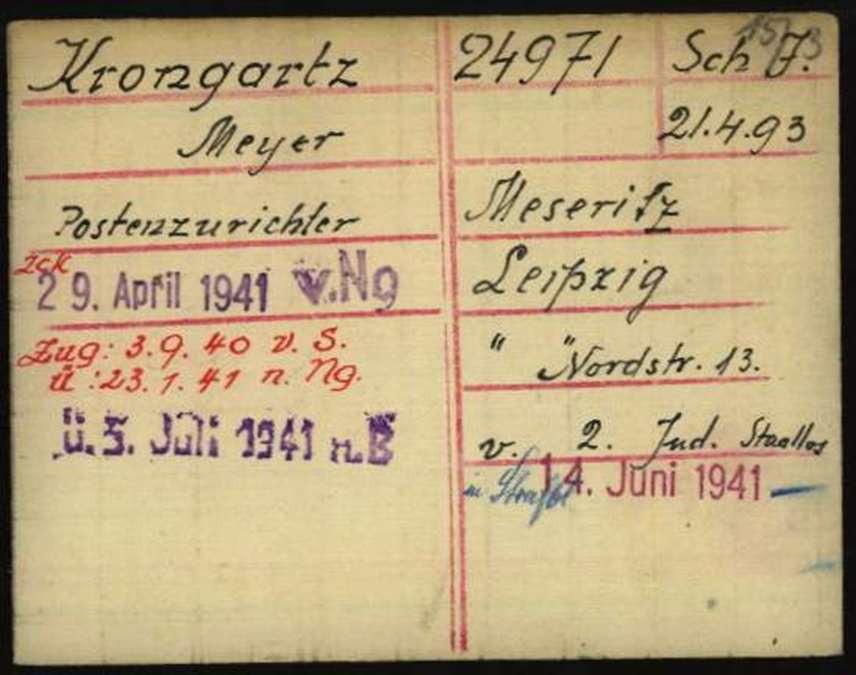 Krongartz
Meyer
Postenzurichter
zck
29. April 1941 v.Ng
Zug: 3.9.40 v. S.
Ü: 23.1.41 n. Ng.
Ü. 5. Juli 1941 n.B
24971 Sch J.
21.4.93
Meseritz
Leipzig
" " Nordstr. 13.
v. 2. Jud. Staatlos
in 14. Juni 1941 —